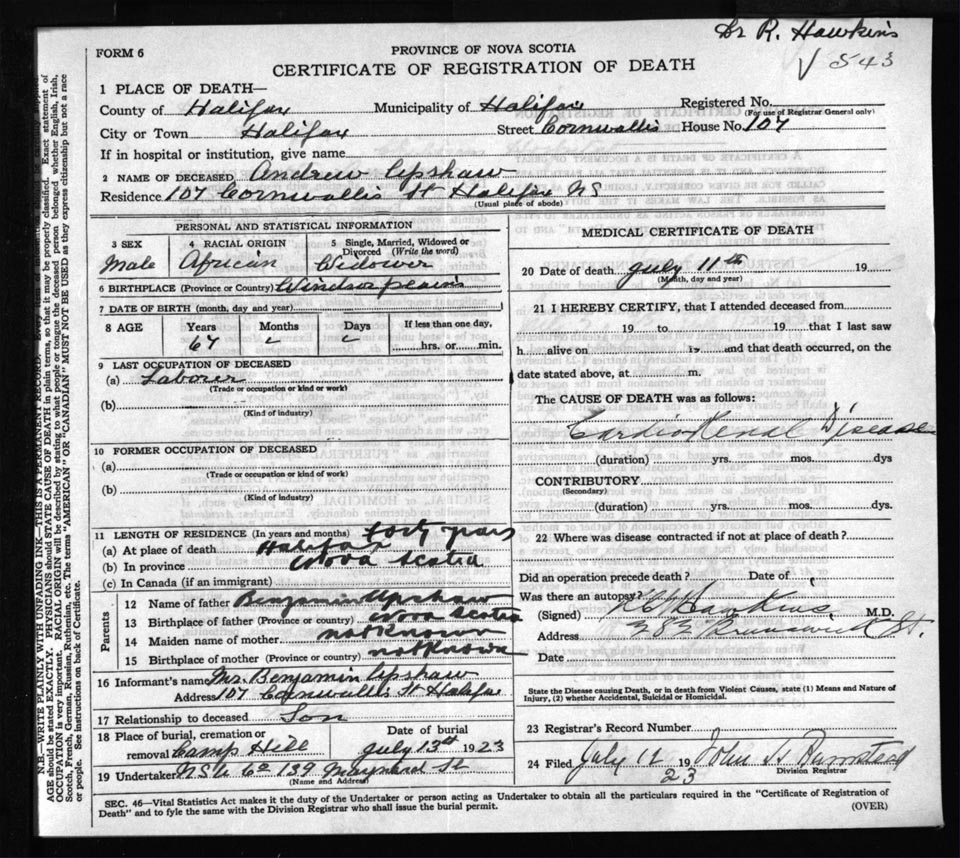 Dr R. Hawkins
543
FORM 6
PROVINCE OF NOVA SCOTIA
CERTIFICATE OF REGISTRATION OF DEATH
1 PLACE OF DEATH—
County of Halifax Municipality of Halifax Registered No.
(For use of Registrar General only)
City or Town Halifax Street Cornwallis House No. 107
If in hospital or institution, give name
2 NAME OF DECEASED Andrew Upshaw
Residence 107 Cornwallis St Halifax NS
(Usual place of abode)
PERSONAL AND STATISTICAL INFORMATION
3 SEX 4 RACIAL ORIGIN 5 Single, Married, Widowed or Divorced (Write the word)
Male African Widower
6 BIRTHPLACE (Province or Country) Windsor plains
7 DATE OF BIRTH (month, day and year)
8 AGE Years Months Days If less than one day,
67 hrs. or min.
9 LAST OCCUPATION OF DECEASED
(a) Laborer
(Trade or occupation or kind or work)
(b)
(Kind of industry)
10 FORMER OCCUPATION OF DECEASED
(a)
(Trade or occupation or kind of work)
(b)
(Kind of industry)
11 LENGTH OF RESIDENCE (In years and months) forty years
(a) At place of death Halifax
(b) In province Nova Scotia
(c) In Canada (if an immigrant)
Parents
12 Name of father Benjamin Upshaw
13 Birthplace of father (Province or country) Nova Scotia
14 Maiden name of mother not Known
15 Birthplace of mother (Province or country) not Known
16 Informant's name Mr. Benjamin Upshaw
Address 107 Cornwallis St Halifax
17 Relationship to deceased Son
18 Place of burial, cremation or removal Camp Hill Date of burial July 13th 1923
19 Undertaker N.S.U Co 139 Maynard St
(Name and Address)
MEDICAL CERTIFICATE OF DEATH
20 Date of death July 11th 19
(Month, day and year)
21 I HEREBY CERTIFY, that I attended deceased from
, 19 to 19 that I last saw
h alive on 19 and that death occurred, on the
date stated above, at m.
The CAUSE OF DEATH was as follows:
Cardio Renal Disease
(duration) yrs. mos. dys
CONTRIBUTORY
(Secondary)
(duration) yrs. mos. dys.
22 Where was disease contracted if not at place of death?
Did an operation precede death? Date of
Was there an autopsy?
(Signed) Hawkins M.D.
Address 282 Brunswick St.
Date
State the Disease causing Death, or in death from Violent Causes, state (1) Means and Nature of
Injury, (2) whether Accidental, Suicidal or Homicidal.
23 Registrar's Record Number
24 Filed July 12 1923 John
Division Registrar
SEC. 46—Vital Statistics Act makes it the duty of the Undertaker or person acting as Undertaker to obtain all the particulars required in the "Certificate of Registration of
Death" and to fyle the same with the Division Registrar who shall issue the burial permit.
(OVER)